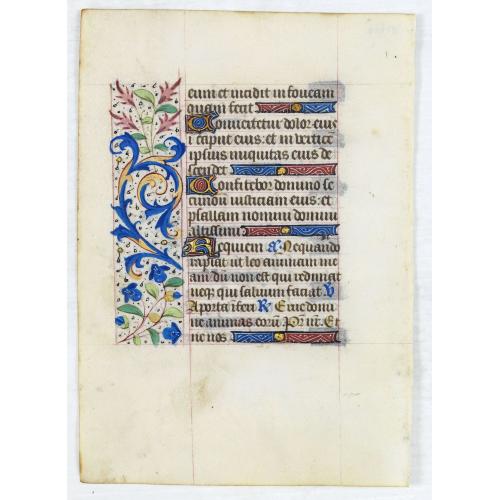 eum et incidit in foveam
quam fecit
Convertetur dolor eius
i caput eius: et in vertice
ipsius iniquitas eius de
scendet
Confitebor domino se
cundu iusticiam eius: et
psallam nomini domini
altissimi
Requiem a. Nequando
rapiat ut leo animam me
am du non est qui redimat
neqz qui salvum faciat V
A porta iferi R Erue domi
ne animas eoru Pr nr. Et
ne nos